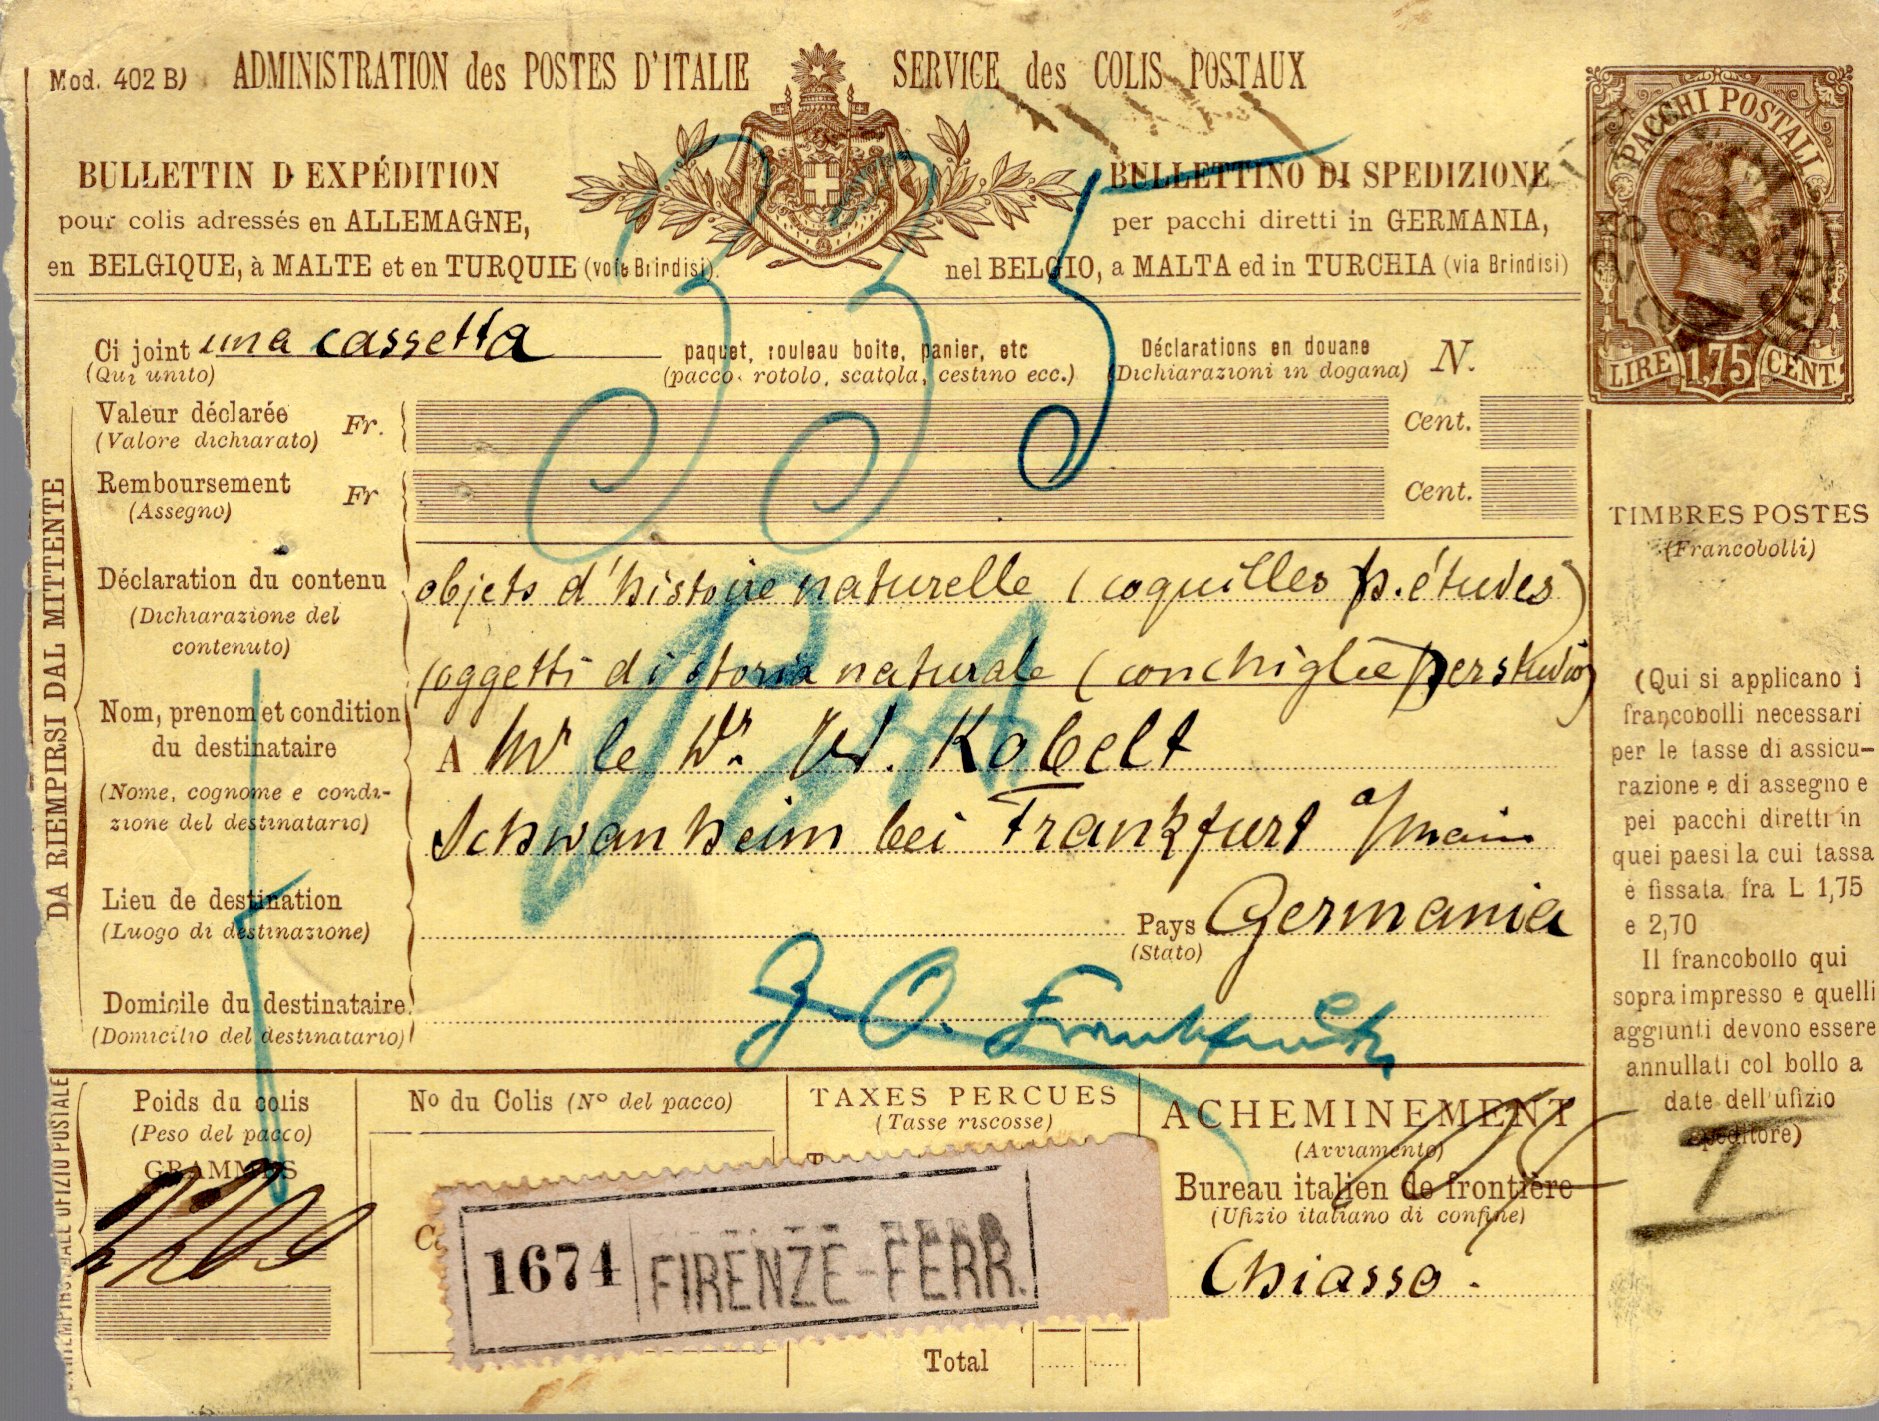 Mod. 402 B) ADMINISTRATION des POSTES D'ITALIE SERVICE des COLIS POSTAUX
BULLETTIN D EXPÉDITION
pour colis adressés en ALLEMAGNE,
en BELGIQUE, à MALTE et en TURQUIE (voie Brindisi).
BULLETTINO DI SPEDIZIONE
per pacchi diretti in GERMANIA,
nel BELGIO, a MALTA ed in TURCHIA (via Brindisi)
PACCHI POSTALI
LIRE 1,75 CENT.
335
Ci joint una cassetta paquet, rouleau boite, panier, etc Déclarations en douane N.
(Qui unito) (pacco, rotolo, scatola, cestino ecc.) (Dichiarazioni in dogana)
Valeur déclarée Fr. Cent.
(Valore dichiarato)
Remboursement Fr Cent.
(Assegno)
DA RIEMPIRSI DAL MITTENTE
Déclaration du contenu objets d'histoire naturelle (coquilles p. études)
(Dichiarazione del
contenuto)
(oggetti di storia naturale (conchiglie per studio)
Nom, prenom et condition
du destinataire
A Mr le Dr. W. Kobelt
(Nome, cognome e condi-
zione del destinatario)
Schwanheim bei Frankfurt a/main
Lieu de destination
(Luogo di destinazione)
Pays Germania
(Stato)
Domicile du destinataire
(Domicilio del destinatario)
TIMBRES POSTES
(Francobolli)
(Qui si applicano i
francobolli necessari
per le tasse di assicu-
razione e di assegno e
pei pacchi diretti in
quei paesi la cui tassa
è fissata fra L 1,75
e 2,70
Il francobollo qui
sopra impresso e quelli
aggiunti devono essere
annullati col bollo a
date dell'ufizio
speditore)
I
Poids du colis
(Peso del pacco)
GRAMMES
No du Colis (No del pacco)
1674 FIRENZE-FERR.
TAXES PERCUES
(Tasse riscosse)
Total
ACHEMINEMENT
(Avviamento)
Bureau italien de frontière
(Ufizio italiano di confine)
Chiasso.